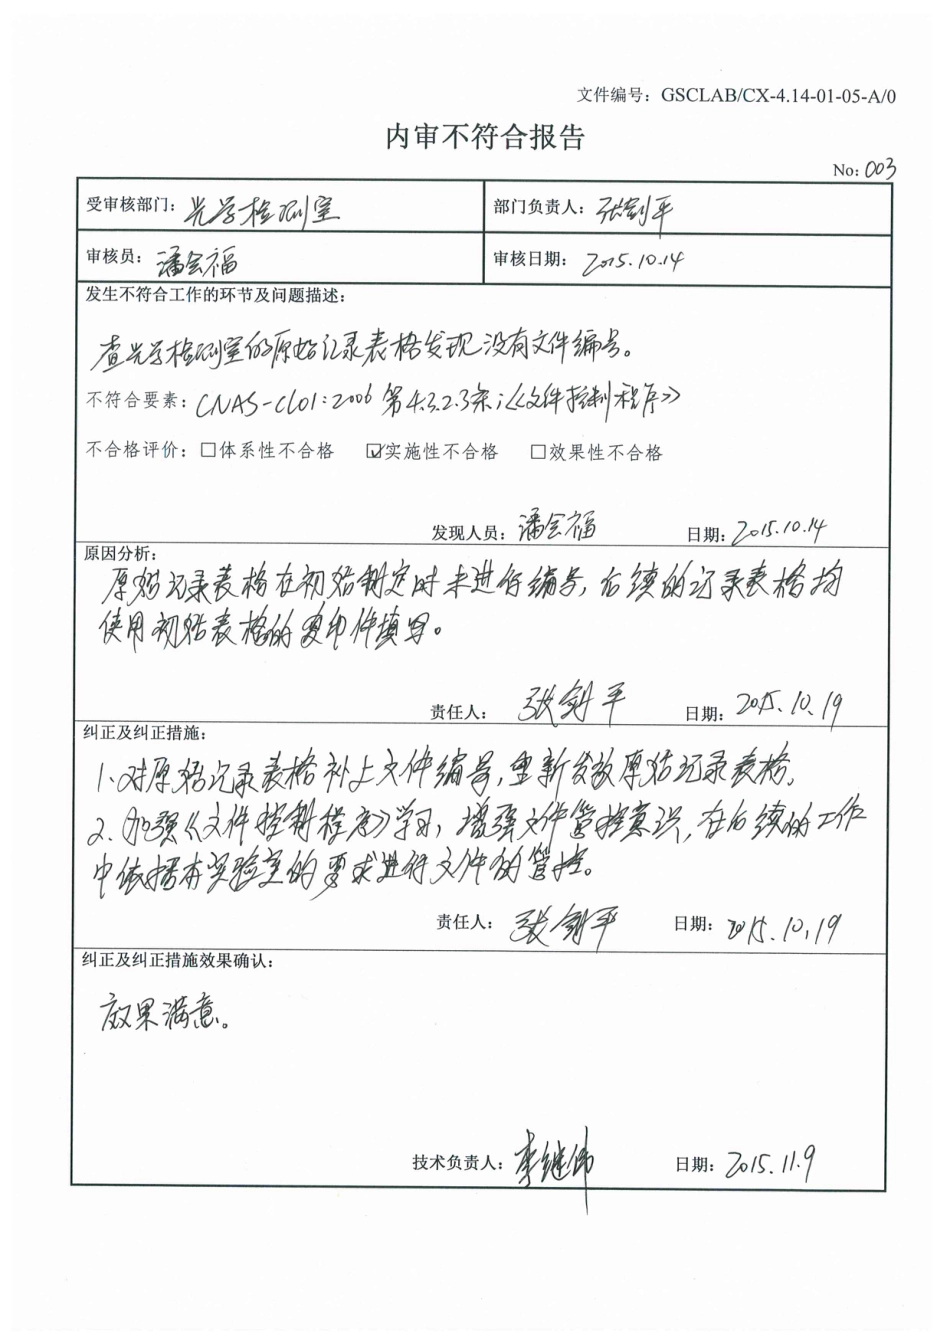 文件编号：GSCLAB/CX-4.14-01-05-A/0
内审不符合报告
No: 003
受审核部门：光学检测室 部门负责人：张剑平
审核员：潘会福 审核日期：2015.10.14
发生不符合工作的环节及问题描述：
查光学检测室的原始记录表格发现没有文件编号。
不符合要素：CNAS-CL01:2006 第4.3.2.3条；《文件控制程序》
不合格评价：☐体系性不合格 ☑实施性不合格 ☐效果性不合格
发现人员：潘会福 日期：2015.10.14
原因分析：
原始记录表格在初始制定时未进行编号，后续的记录表格均
使用初始表格的复印件填写。
责任人：张剑平 日期：2015.10.19
纠正及纠正措施：
1.对原始记录表格补上文件编号，重新发放原始记录表格。
2.加强《文件控制程序》学习，增强文件管控意识，在后续的工作
中依据本实验室的要求进行文件的管控。
责任人：张剑平 日期：2015.10.19
纠正及纠正措施效果确认：
效果满意。
技术负责人：李继伟 日期：2015.11.9